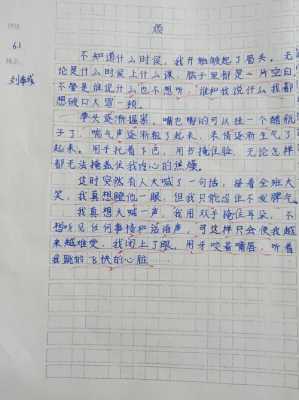 班级
6.1
姓名
烦
不知道什么时候,我开始皱起了眉头。无
论是什么时候上什么课,脑子里都是一片空白,
不管是谁说什么也不想听,谁和我说什么我都
想破口大骂一顿。
拳头逐渐握紧,嘴巴嘟的可以挂一个醋瓶
子了,喘气声逐渐粗了起来,表情逐渐生气了
起来。用手托着下巴,用书掩住脸,无论怎样
都无法掩盖住我内心的焦燥。
这时突然有人大喊了一句话,接着全班大
笑,我真想瞪他一眼,但我只能忍住不发脾气。
我真想大喊一声,我用双手掩住耳朵,不
想听见任何事情和说话声,可这样只会使我越
来越难受,我闭上了眼。用牙咬着嘴唇,听着
我跳的飞快的心脏